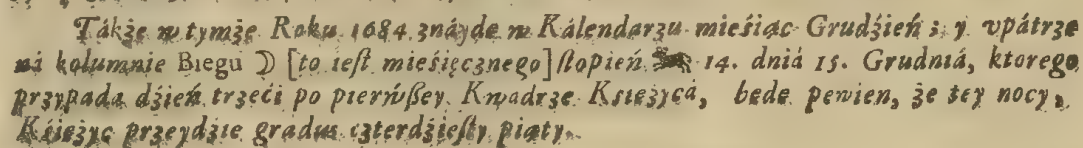 Tákże w tymże Roku 1684 znáyde w Kálendarzu mieśiąc Grudźień; y vpátrze
ná kolumnie Biegu ☽ [to ieſt mieśięcznego] ſtopień ♉ 14. dniá 15. Grudniá, ktorego
przypada dźień trzeći po pierwßey Kwadrze Kśiężyca, bede pewien, że tey nocy,
Kśiężyc przeydźie gradus czterdźieſty piąty.